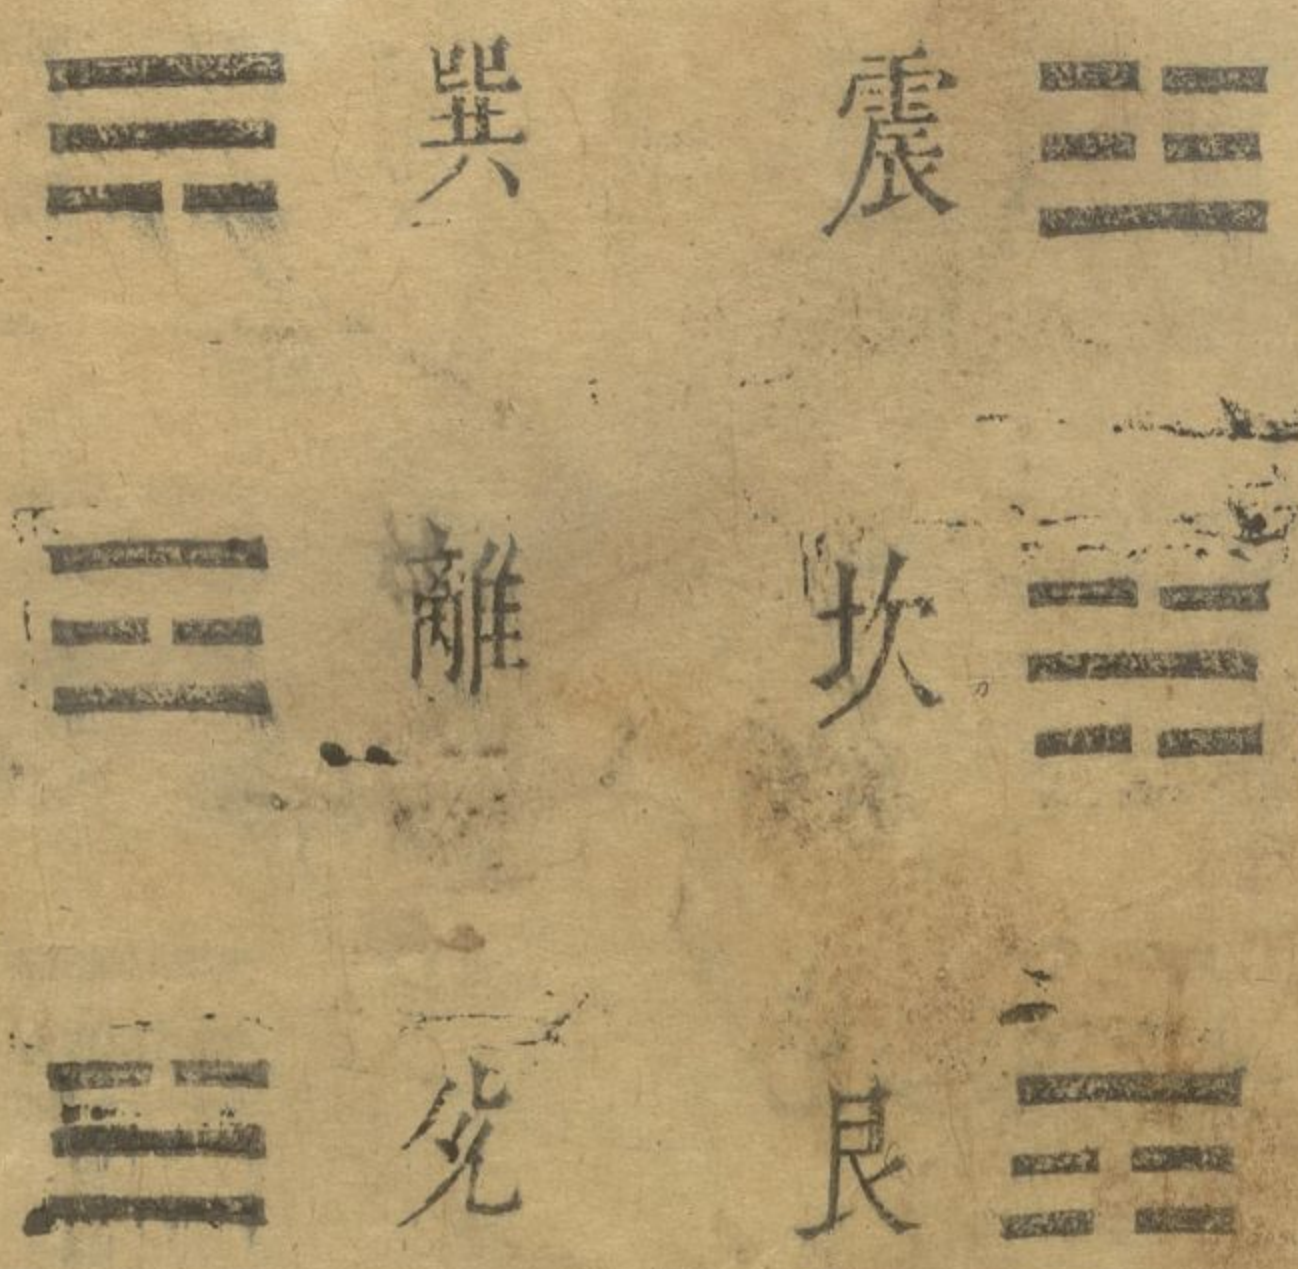 震 巽
坎 離
艮 兊